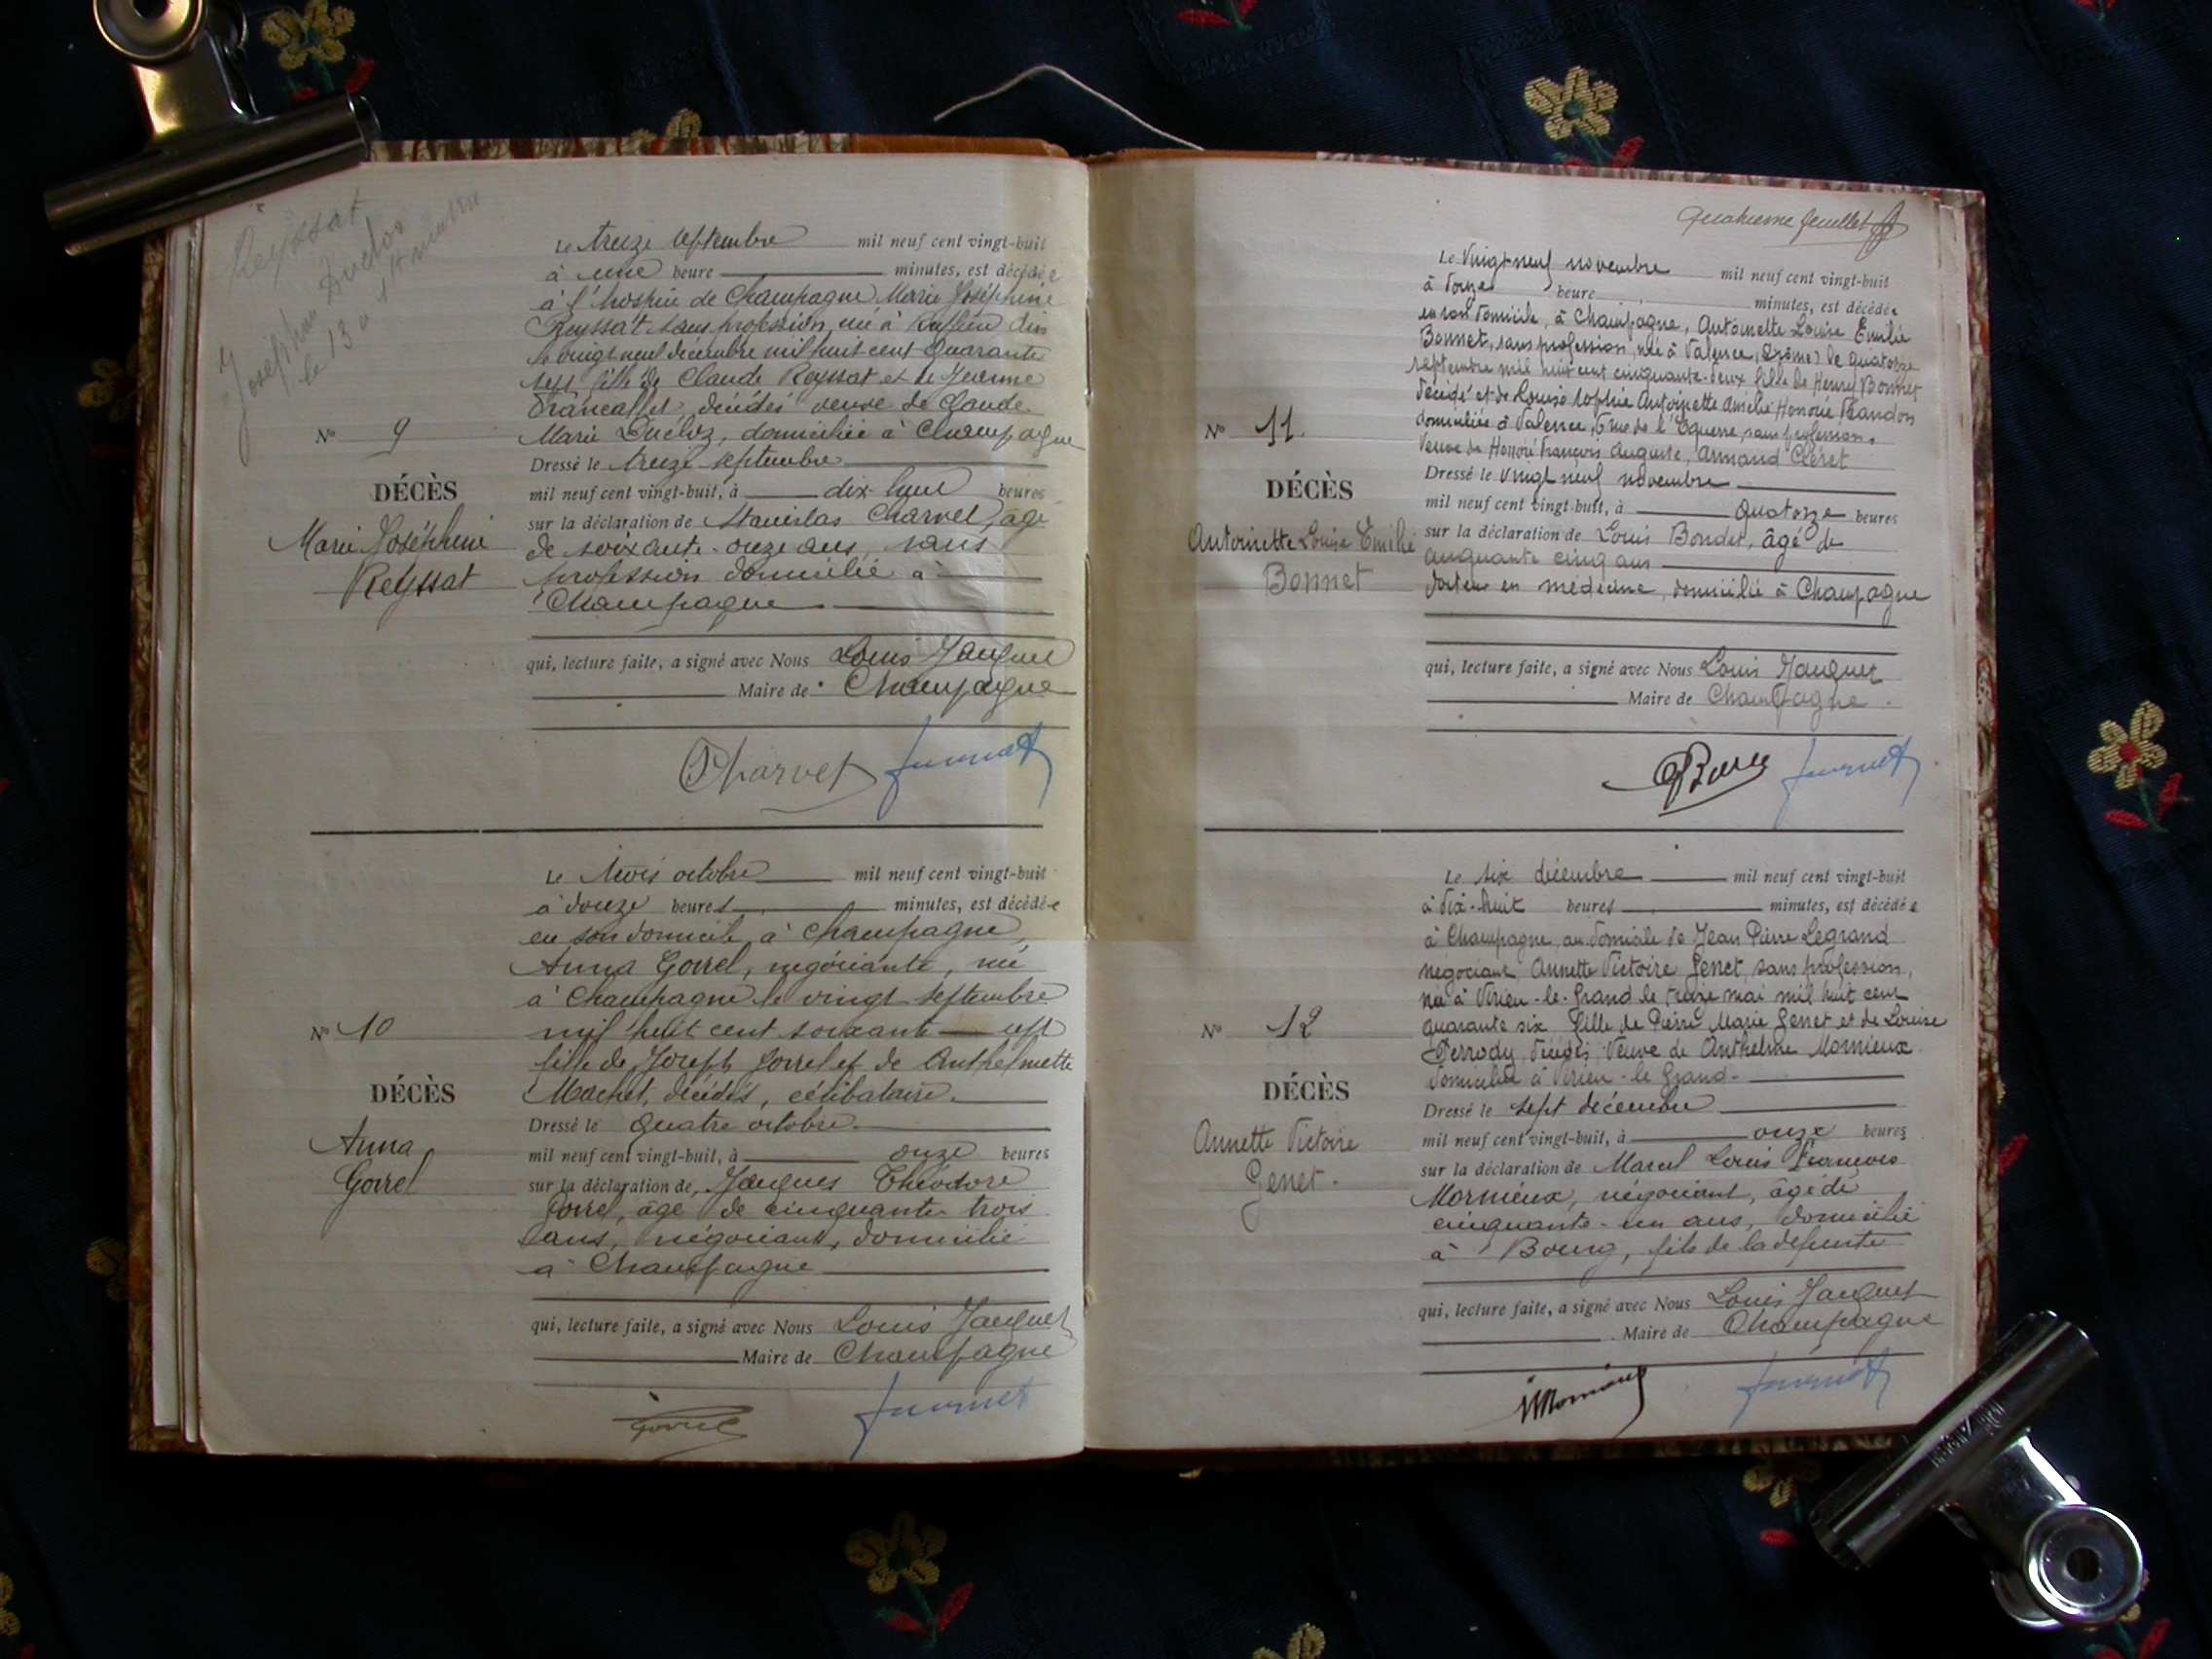 Reyssat
Josephine Duclos
le 13 a 1h
Le treize septembre mil neuf cent vingt-huit
à une heure minutes, est décédée
à l'hospice de Champagne Marie Joséphine
Reyssat sans profession, née à Ruffieu Ain
le vingt neuf décembre mil huit cent quarante
sept fille de Claude Reyssat et de Jeanne
Francallet, décédés veuve de Claude
Marie Duclos, domiciliée à Champagne
Nº 9
Dressé le treize septembre
DÉCÈS
mil neuf cent vingt-huit, à dix-huit heures
Marie Joséphine
Reyssat
sur la déclaration de Stanislas Charvet, âgé
de soixante-onze ans, sans
profession domicilié à
Champagne
qui, lecture faite, a signé avec Nous Louis Jauquet
Maire de Champagne
Charvet
Le trois octobre mil neuf cent vingt-huit
à douze heures minutes, est décédée
en son domicile à Champagne,
Anna Gorrel, négociante, née
à Champagne le vingt septembre
Nº 10
mil huit cent soixante sept
fille de Joseph Gorrel et de Anthelmette
Machet, décédés, célibataire.
DÉCÈS
Dressé le quatre octobre.
Anna
Gorrel
mil neuf cent vingt-huit, à onze heures
sur la déclaration de Jacques Théodore
Gorrel, âgé de cinquante trois
ans, négociant, domicilié
à Champagne
qui, lecture faite, a signé avec Nous Louis Jauquet
Maire de Champagne
Gorrel
Quatrième feuillet
Le Vingt neuf novembre mil neuf cent vingt-huit
à onze heure minutes, est décédée
en son domicile, à Champagne, Antoinette Louise Emilie
Bonnet, sans profession, née à Valence, (Drôme) le quatorze
septembre mil huit cent cinquante-deux fille de Henry Bonnet
décédé et de Louise Sophie Antoinette Amélie Honorée
domiciliée à Valence, 6 rue de l'Equerre, sans profession.
Nº 11.
Veuve de Honoré François Auguste, Armand Cléret
Dressé le vingt neuf novembre
DÉCÈS
mil neuf cent vingt-huit, à quatorze heures
Antoinette Louise Emilie
Bonnet
sur la déclaration de Louis Bonder, âgé de
cinquante cinq ans
docteur en médecine, domicilié à Champagne
qui, lecture faite, a signé avec Nous Louis Jauquet
Maire de Champagne.
Le six décembre mil neuf cent vingt-huit
à dix-huit heures minutes, est décédée
à Champagne au domicile de Jean Pierre Legrand
négociant Annette Victoire Genet, sans profession,
née à Virieu-le-Grand le treize mai mil huit cent
Nº 12
quarante six fille de Pierre Marie Genet et de Louise
Perrody, décédés, Veuve de Anthelme Mornieux
domiciliée à Virieu-le-Grand-
DÉCÈS
Dressé le sept décembre
Annette Victoire
Genet.
mil neuf cent vingt-huit, à onze heures
sur la déclaration de Marcel Louis François
Mornieux, négociant, âgé de
cinquante-un ans, domicilié
à Bourg, fils de la défunte
qui, lecture faite, a signé avec Nous Louis Jauquet
Maire de Champagne